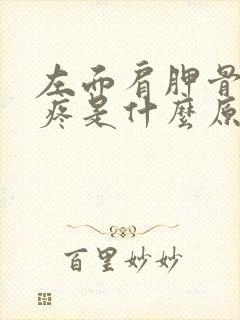 左而肩胛骨
疼是什麼原
百里妙妙